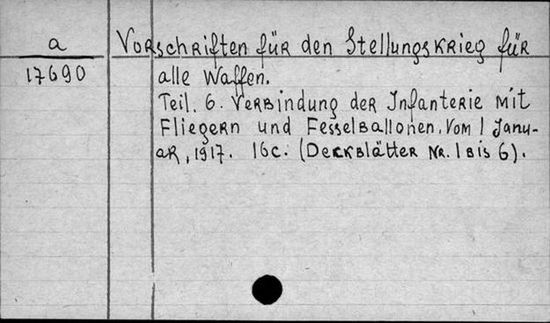 a
17690
Vorschriften für den Stellungskrieg für
alle Waffen.
Teil. 6. Verbindung der Infanterie mit
Fliegern und Fesselballonen. Vom 1 Janu-
ar, 1917. 16c. (Deckblätter Nr. 1 bis 6).